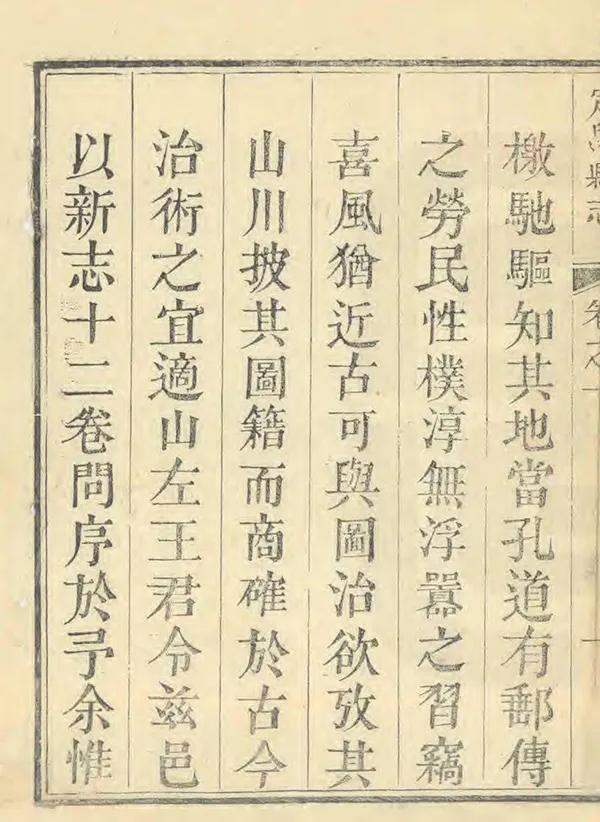 定縣志
卷之一
檄馳驅知其地當孔道有郵傳
之勞民性樸淳無浮囂之習竊
喜風猶近古可與圖治欲攷其
山川披其圖籍而商確於古今
治術之宜適山左王君令茲邑
以新志十二卷問序於予余惟